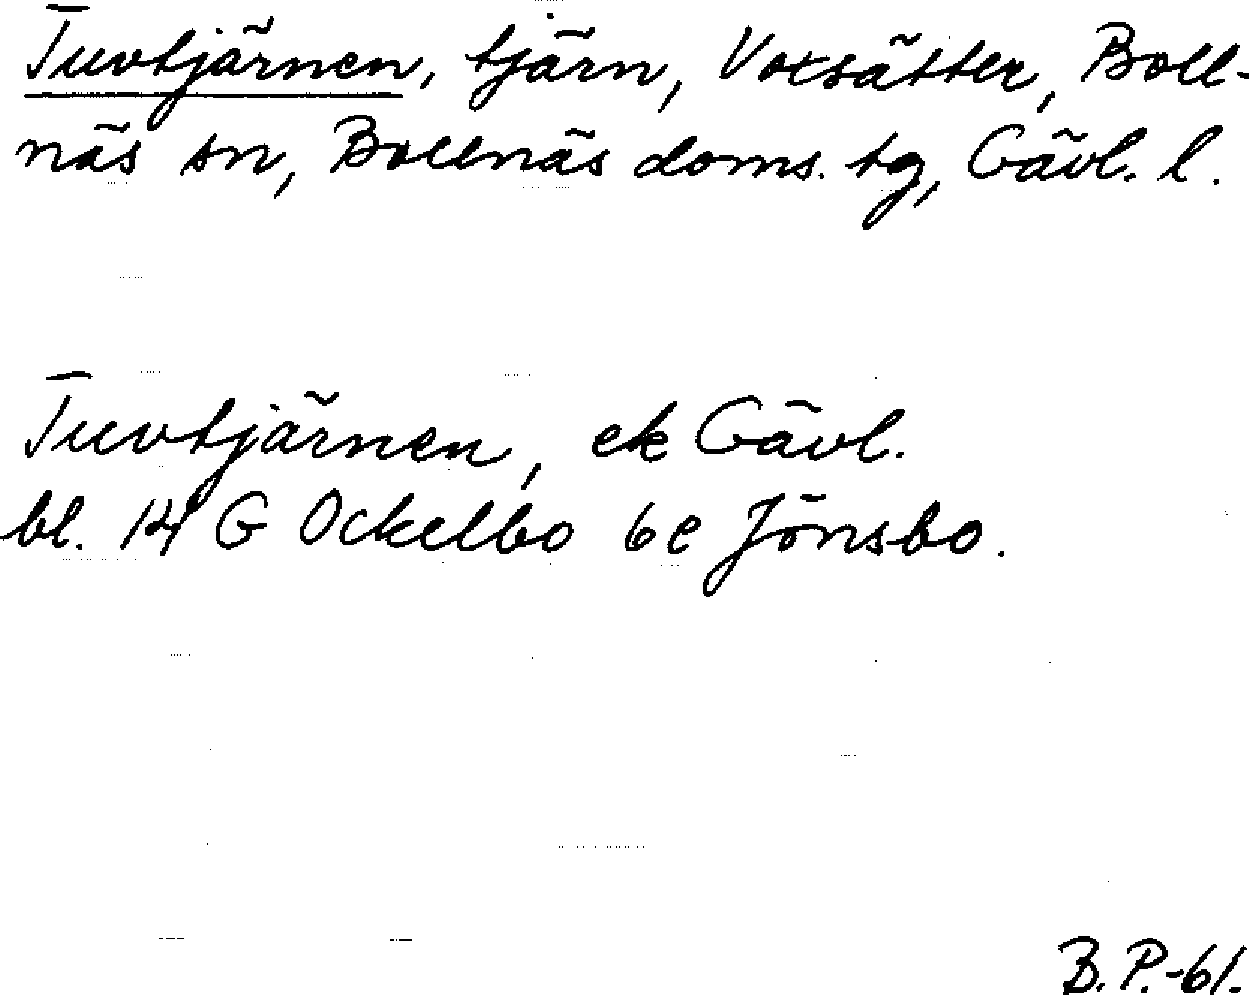 Tuvtjärnen, tjärn, Voxsätter, Boll-
näs sn, Bollnäs doms. tg, Gävl. l.
Tuvtjärnen, ek Gävl.
bl. 14 G Ockelbo 6e Jönsbo.
B. P.-61.